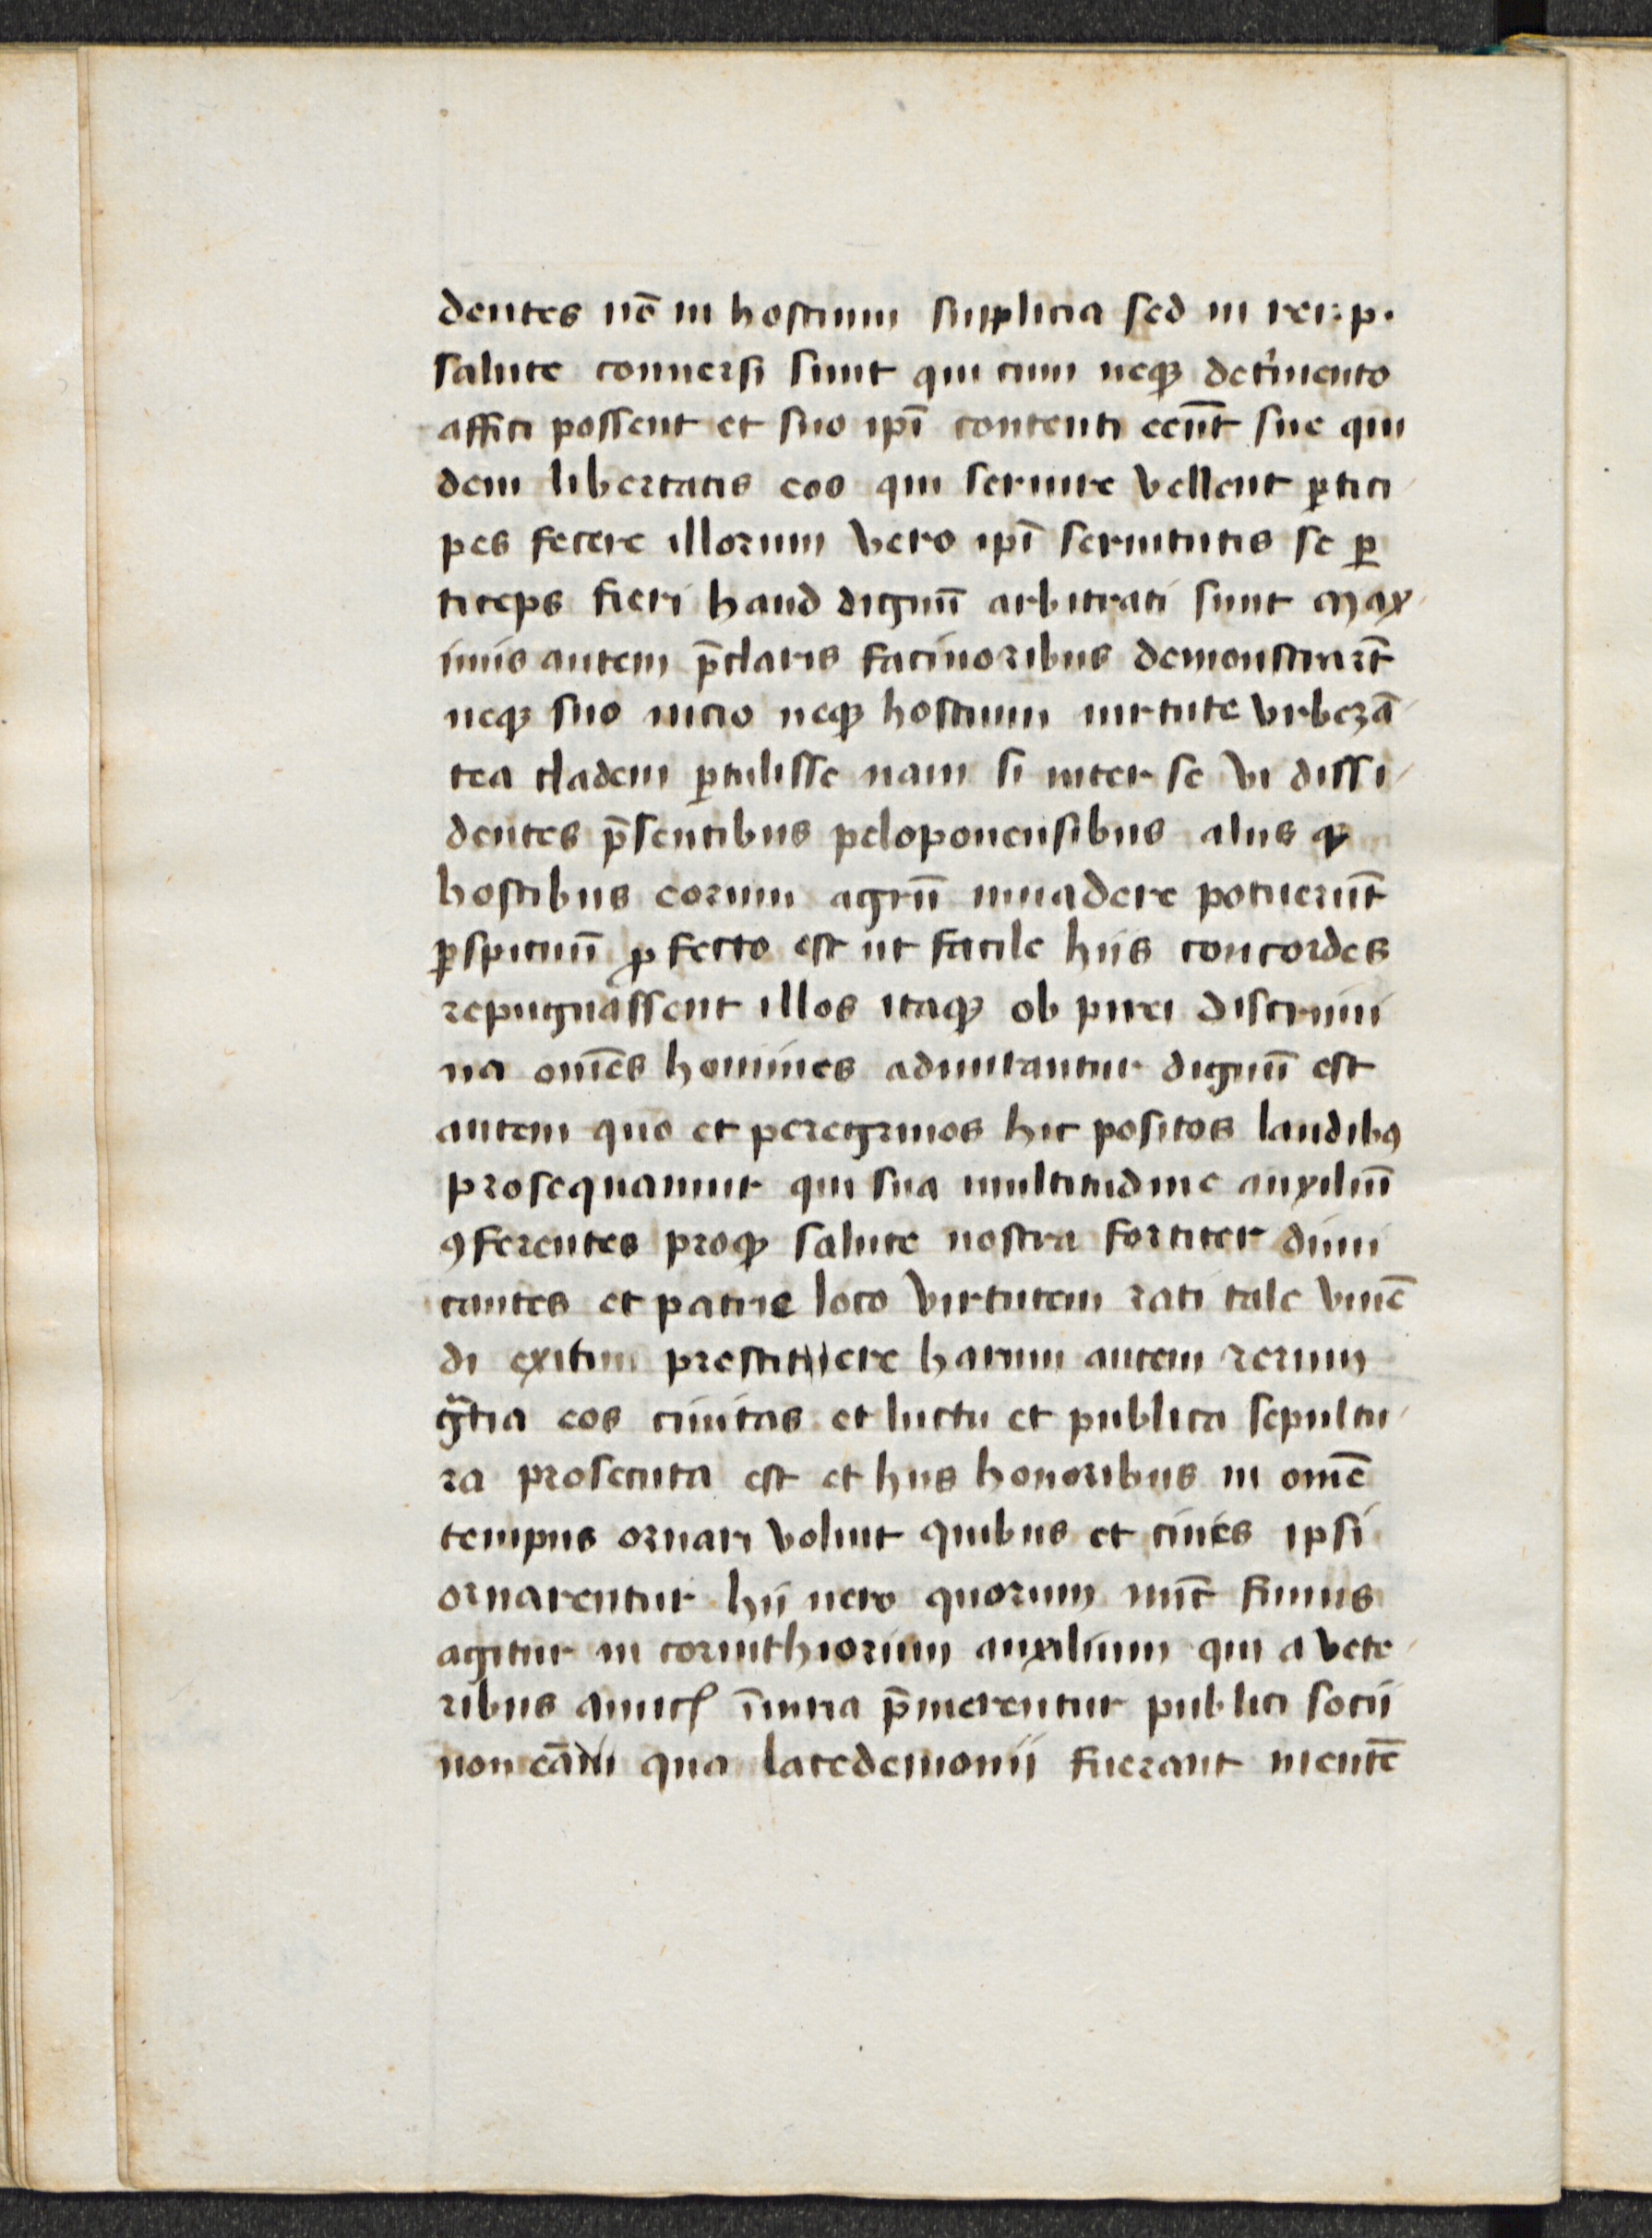 dentes nō in hostium supplicia sed in rei: p.
salute conuersi sunt qui cum neqꝫ detꝰmento
affici possent et suo ip̄i contenti eēnt sue qui
dem libertatis eos qui seruire vellent ꝑtici
pes fecere illorum vero ip̄i seruitutis se ꝑ
ticeps fieri haud dignū arbitrati sunt Max
imis autem p̄claris facinoribus demonstrarūt
neqꝫ suo uicio neqꝫ hostium uirtute vrbē ā
tea cladem ꝑtulisse nam si inter se vi dissi
dentes p̄sentibus peloponensibus aliis qꝫ
hostibus eorum agrū inuadere potuerūt
ꝑspicuū ꝓfecto est ut facile hiis concordes
repugnāssent illos itaqꝫ ob pirei discrimi
na om̄es homines admirantur dignū est
autem quo et peregrinos hic positos laudibꝫ
prosequamur qui sua multitudine auxiliū
ꝯferentes proqꝫ salute nostra fortiter dimi
cantes et patrie loco virtutem rati tale viuē
di exitum prestituere harum autem rerum
gr̄tia eos ciuitas et luctu et publica sepultu
ra prosecuta est et hiis honoribus in omē
tempus ornari voluit quibus et ciues ipsi
ornarentur hij uero quorum nūc funus
agitur in corinthiorum auxilium qui a vete
ribus amicꝭ īiuria p̄merentur publici socii
non eādē qua lacedemonij fuerant mentē